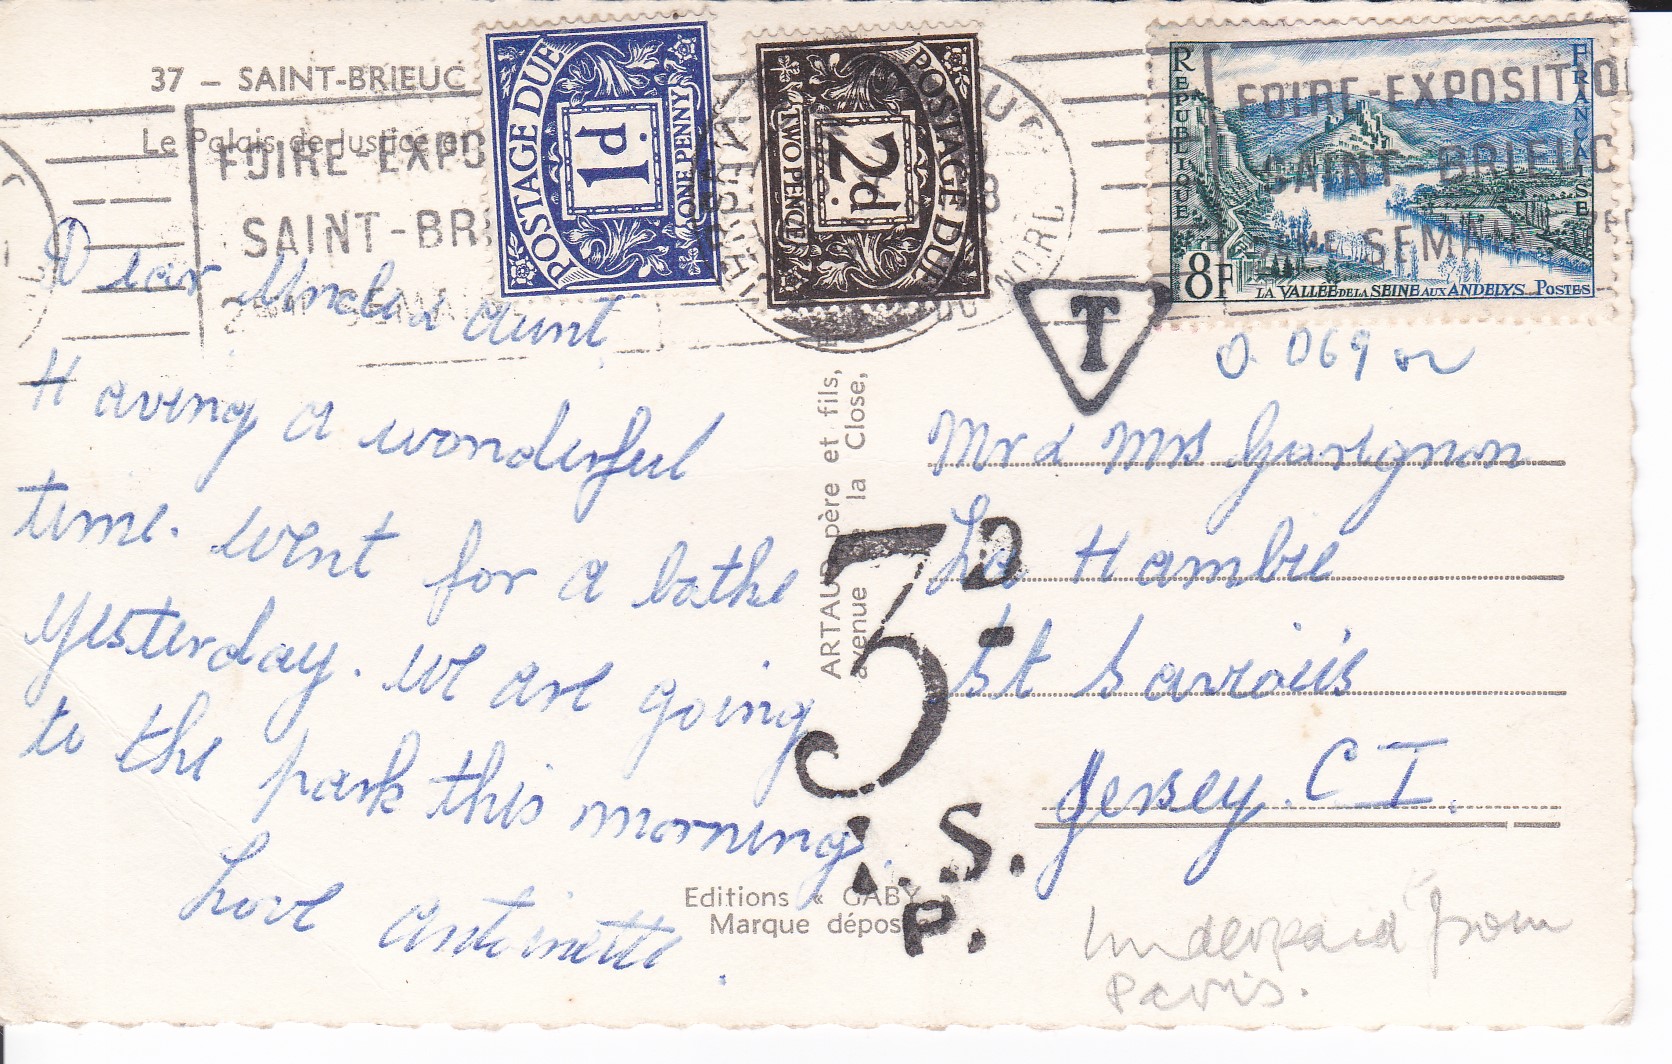 37 - SAINT-BRIEUC
Le Palais de Justice et
FOIRE-EXPO
SAINT-BRI
POSTAGE DUE
1d.
ONE PENNY
POSTAGE DUE
2d.
TWO PENCE
POSTAGE DUE
DU NORD
REPUBLIQUE
FRANÇAISE
8F
LA VALLÉE DE LA SEINE AUX ANDELYS
POSTES
FOIRE-EXPOSITION
SAINT BRIEUC
SEMAI
T
0.069
Dear Uncle & Aunt
Having a wonderful
time. Went for a bathe
yesterday. We are going
to the park this morning.
Love Antoinette.
ARTAUD père et fils,
avenue de la Close,
3D
S.
P.
Mr & Mrs Gavignon
La Hambie
St Saviours
Jersey. C I.
Editions « GABY »
Marque déposée
Underpaid from
Paris.